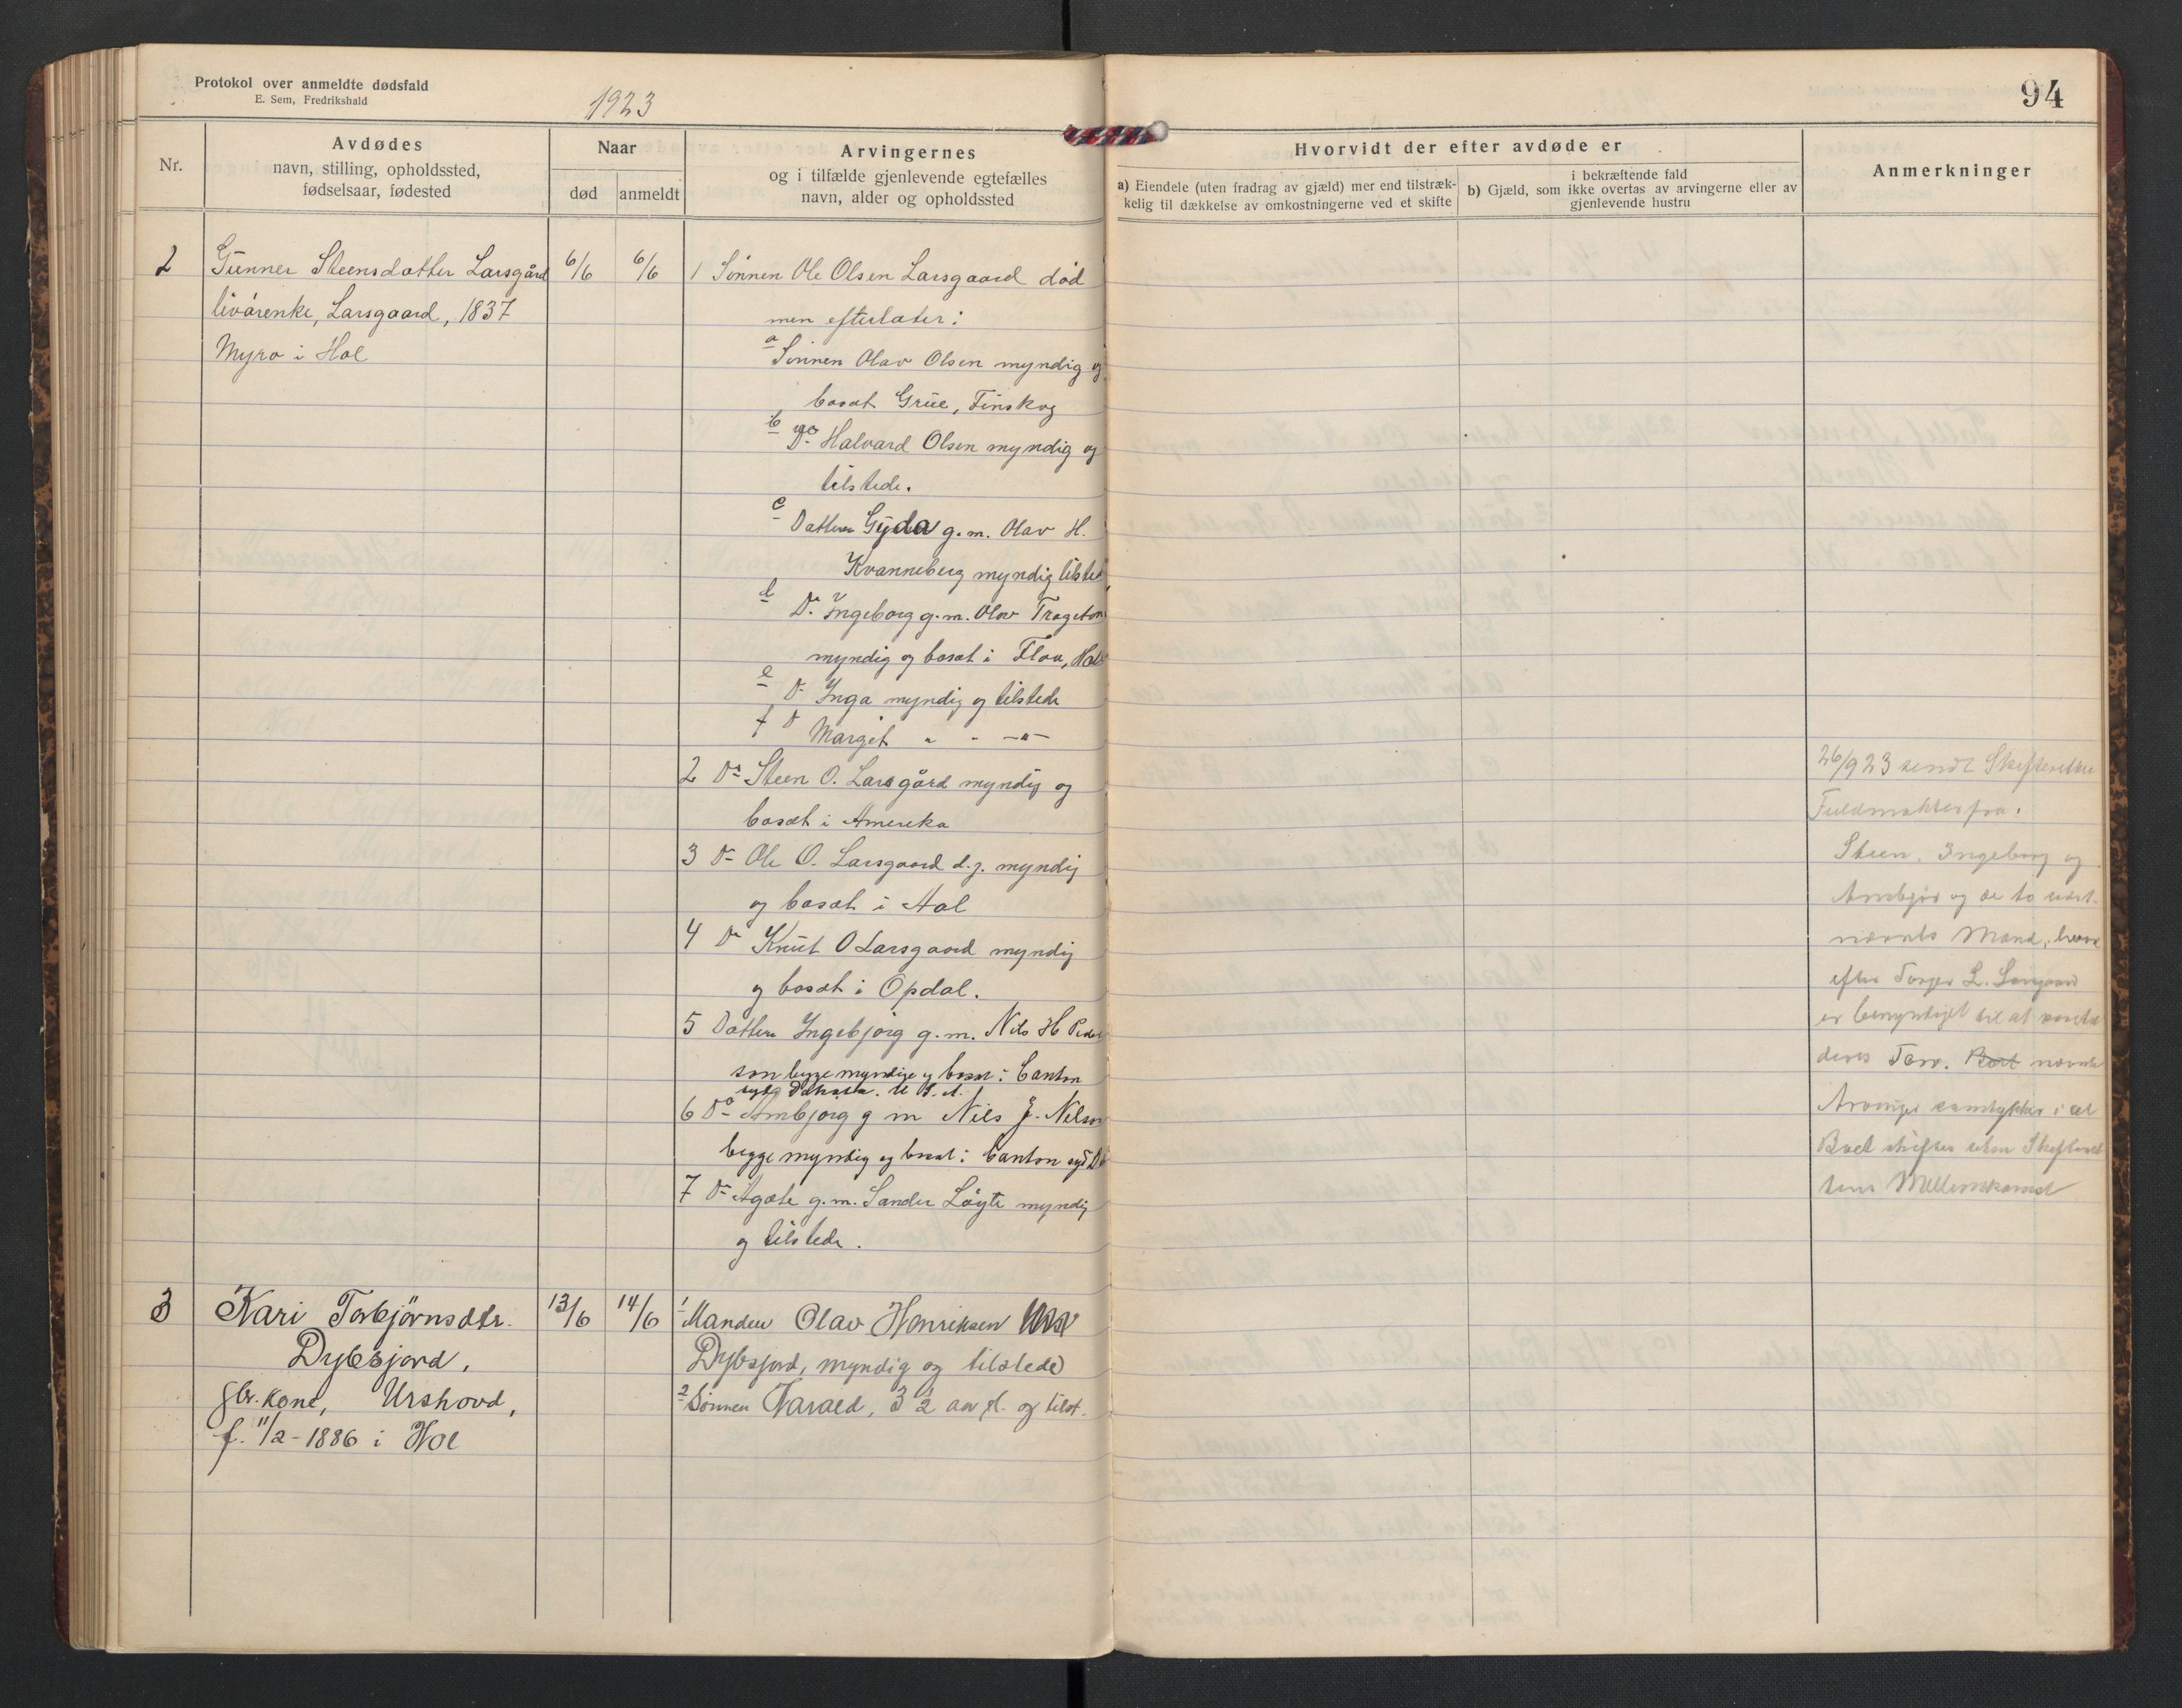 Protokol over anmeldte dødsfald
E. Sem, Fredrikshald
1923
94
Nr.
Avdødes
navn, stilling, opholdssted,
fødselsaar, fødested
Naar
død
anmeldt
Arvingernes
og i tilfælde gjenlevende egtefælles
navn, alder og opholdssted
Hvorvidt der efter avdøde er
a) Eiendele (uten fradrag av gjæld) mer end tilstræk-
kelig til dækkelse av omkostningerne ved et skifte
i bekræftende fald
b) Gjæld, som ikke overtas av arvingerne eller av
gjenlevende hustru
Anmerkninger
2
Gunner Steensdatter Larsgård
livørenke, Larsgaard, 1837
Myro i Hol
6/6
6/6
1 Sønnen Ole Olsen Larsgaard død
men efterlater:
a Sønnen Olav Olsen myndig og
bosat Grue, Finskog
b Do Halvard Olsen myndig og
tilstede.
c Datteren Gyda g.m. Olav H.
Kvanneberg myndig tilsted
d Do Ingeborg g.m. Olav Trageton
myndig og bosat i Flaa, Hal
e Do Inga myndig og tilstede
f Do Margit " " -"-
2 Do Steen O. Larsgård myndig og
bosat i Amerika
3 Do Ole O. Larsgaard d.y. myndig
og bosat i Aal
4 Do Knut O Larsgaard myndig
og bosat i Opdal.
5 Datteren Ingebjørg g.m. Nils H Peder
son begge myndige og bosat i Canton
syd Dakota. U.S.A.
6 Do Ambjørg g m Nils J. Nilson
begge myndig og bosat i Canton syd Da
7 Do Agate g.m. Sander Løgte myndig
og tilstede.
26/9 23 sendt Skifteretten
Fuldmakter fra
Steen, Ingeborg og
Ambjør og de to sidst-
nævnte Mænd, hvor
efter Torger L. Larsgaard
er benyndiget til at vareta
deres Tarv. Bort nævnte
Arvinger samtykker i at
Boet skiftes uten Skifteret
tens Mellemkomst
3
Kari Torbjørnsdtr.
Dybsjord,
gbr. kone, Urshovd,
f. 11/2 - 1886 i Hol
13/6
14/6
1 Manden Olav Henriksen
Dybsjord, myndig og tilstede
2 Sønnen Harald, 3 1/2 aar gl. og tilst.